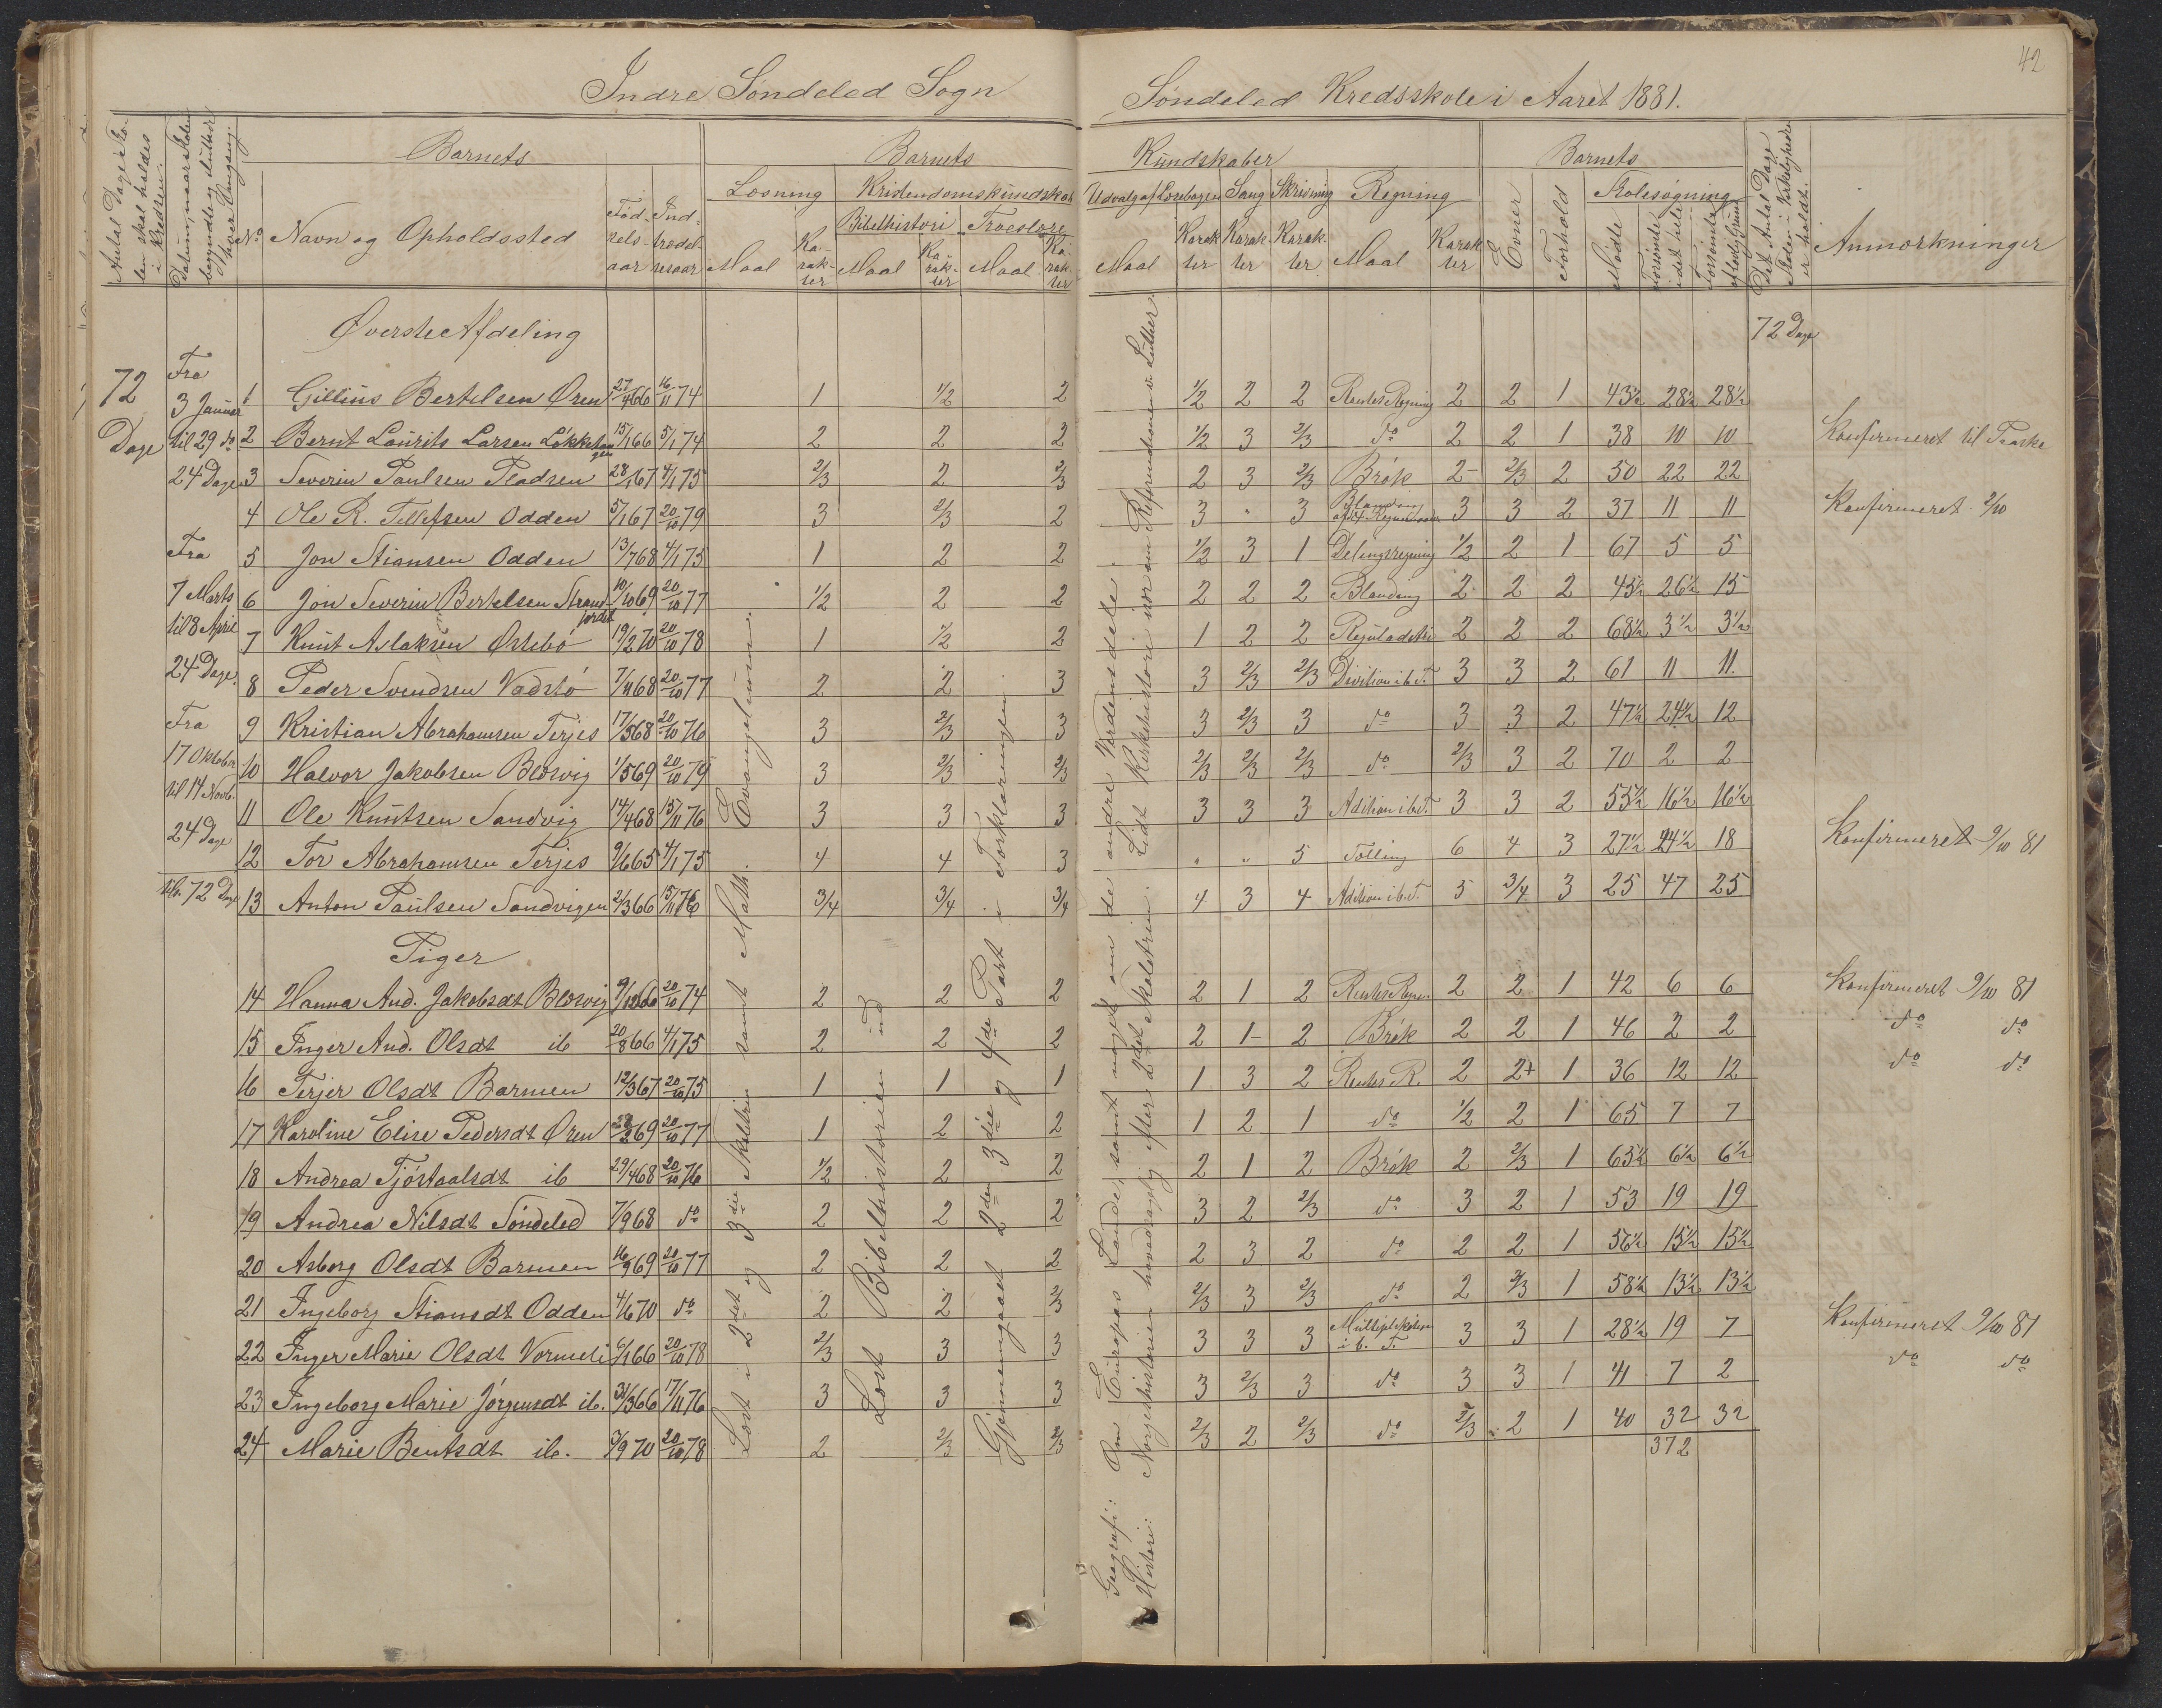 42
Indre Søndeled Sogn
Søndeled Kredsskole i Aaret 1881.
Antal Dage Skolen skal holdes i Kredsen.
Datum, naar Skolen begyndte og sluttede hver Omgang.
Barnets
Barnets
Kundskaber
Barnets
No Navn og Opholdssted
Fødselsaar
Indtrædelsesaar
Læsning
Kristendomskundskab
Bibelhistorie
Troeslære
Maal Karakter Maal Karakter Maal Karakter
Udvalg af Læsebogen Sang Skrivning Regning
Maal Karakter Karakter Karakter Maal Karakter
Evner
Forhold
Skolesøgning
Mødte
Forsømte i det hele
Forsømte af lovlig Grund
Det Antal Dage Skolen i Virkeligheden er holdt.
Anmærkninger
Øverste Afdeling
72 Dage
72 Dage
Fra 3 Januar til 29 do 24 Dage
Fra 7 Marts til 8 April 24 Dage.
Fra 17 Oktober til 14 Novb. 24 Dage
72 Dage
1 Gillius Bertelsen Øren 27/4 66 16/11 74 1 1/2 2 1/2 2 2 Rentes Regning 2 2 1 43 1/2 28 1/2 28 1/2
2 Bernt Laurits Larsen Løkkehaugen 15/1 66 5/1 74 2 2 2 1/2 3 2/3 do 2 2 1 38 10 10 Konfirmeret til Paaske
3 Severin Paulsen Pladsen 28/1 67 4/1 75 2/3 2 2/3 2 3 2/3 Brøk 2- 2/3 2 50 22 22
4 Ole R. Tellefsen Odden 5/1 67 20/10 79 3 2/3 2 3 " 3 Blanding 3 3 2 37 11 11 Konfirmeret 2/10
5 Jon Stiansen Odden 13/7 68 4/1 75 1 2 2 1/2 3 1 Delingsregning 1/2 2 1 67 5 5
6 Jon Severin Bertelsen Strandjordet 10/10 69 20/10 77 1/2 2 2 2 2 2 Blanding 2 2 2 45 1/2 26 1/2 15
7 Knut Aslaksen Østebø 19/2 70 20/10 78 1 1/2 2 1 2 2 Reguladetri 2 2 2 68 1/2 3 1/2 3 1/2
8 Peder Svendsen Vadstø 7/11 68 20/10 77 2 2 3 3 2/3 2/3 Division i b. T. 3 3 2 61 11 11.
9 Kristian Abrahamsen Terjes 17/5 68 20/10 76 3 2/3 3 3 2/3 3 do 3 3 2 47 1/2 24 1/2 12
10 Halvor Jakobsen Blesvig 1/5 69 20/10 79 3 2/3 2/3 2/3 2/3 2/3 do 2/3 3 2 70 2 2
11 Ole Knutsen Sandvig 14/4 68 15/11 76 3 3 3 3 3 3 Adition i b. T. 3 3 2 55 1/2 16 1/2 16 1/2
12 Tor Abrahamsen Terjes 9/6 65 4/1 75 4 4 3 " " 5 Tælling 6 4 3 27 1/2 24 1/2 18 Konfirmeret 9/10 81
13 Anton Paulsen Sandvigen 2/3 66 15/11 76 3/4 3/4 3/4 4 3 4 Adition i b. T. 5 3/4 3 25 47 25
Piger
14 Hanna And. Jakobsdt Blesvig 9/12 66 20/10 74 2 2 2 2 1 2 Rentes Regn. 2 2 1 42 6 6 Konfirmeret 9/10 81
15 Inger And. Olsdt ib 20/8 66 4/1 75 2 2 2 2 1- 2 Brøk 2 2 1 46 2 2 do do
16 Terjer Olsdt Barmen 12/3 67 20/10 75 1 1 1 1 3 2 Rentes R. 2 2+ 1 36 12 12 do do
17 Karoline Elise Pedersdt Øren 69 20/10 77 1 2 2 1 2 1 do 1/2 2 1 65 7 7
18 Andrea Tjøstaalsdt ib 29/4 68 20/10 76 1/2 2 2 2 1 2 Brøk 2 2/3 1 65 1/2 6 1/2 6 1/2
19 Andrea Nilsdt Søndeled 7/9 68 do 2 2 2 3 2 2/3 do 3 2 1 53 19 19
20 Asborg Olsdt Barmen 16/9 69 20/10 77 2 2 2 2 3 2 do 2 2 1 56 1/2 15 1/2 15 1/2
21 Ingeborg Stiansdt Odden 4/6 70 do 2 2 2/3 2/3 3 2/3 do 2 2/3 1 58 1/2 13 1/2 13 1/2
22 Inger Marie Olsdt Vormeli 6/1 66 20/10 78 2/3 3 3 3 3 3 Multiplikation i b. T. 3 3 1 28 1/2 19 7 Konfirmeret 9/10 81
23 Ingeborg Marie Jørgensdt ib. 31/3 66 17/11 76 3 3 3 3 2/3 3 do 3 3 1 41 7 2 do do
24 Marie Bentsdt ib. 3/9 70 20/10 78 2 2/3 2/3 2/3 2 2/3 do 2/3 2 1 40 32 32
372
Læst i 2det og 3die Skoletrin samt Math. Evangelium.
Læst Bibelhistorien ud
Gjennemgaaet 2den 3die og 4de Part i Forklaringen.
Geografi: Om Europas Lande, samt noget om de andre Verdensdele.
Historie: Norgeshistorien hovedsagelig efter 2det Skoletrin. Lidt Kirkehistorie især om Reformationen v. Luther.